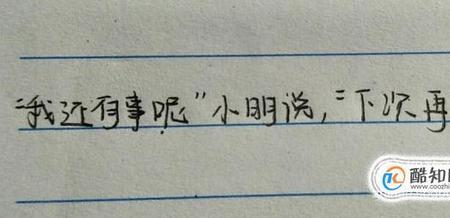 “我还有事呢”小明说，“下次再
酷知
www.coozhi